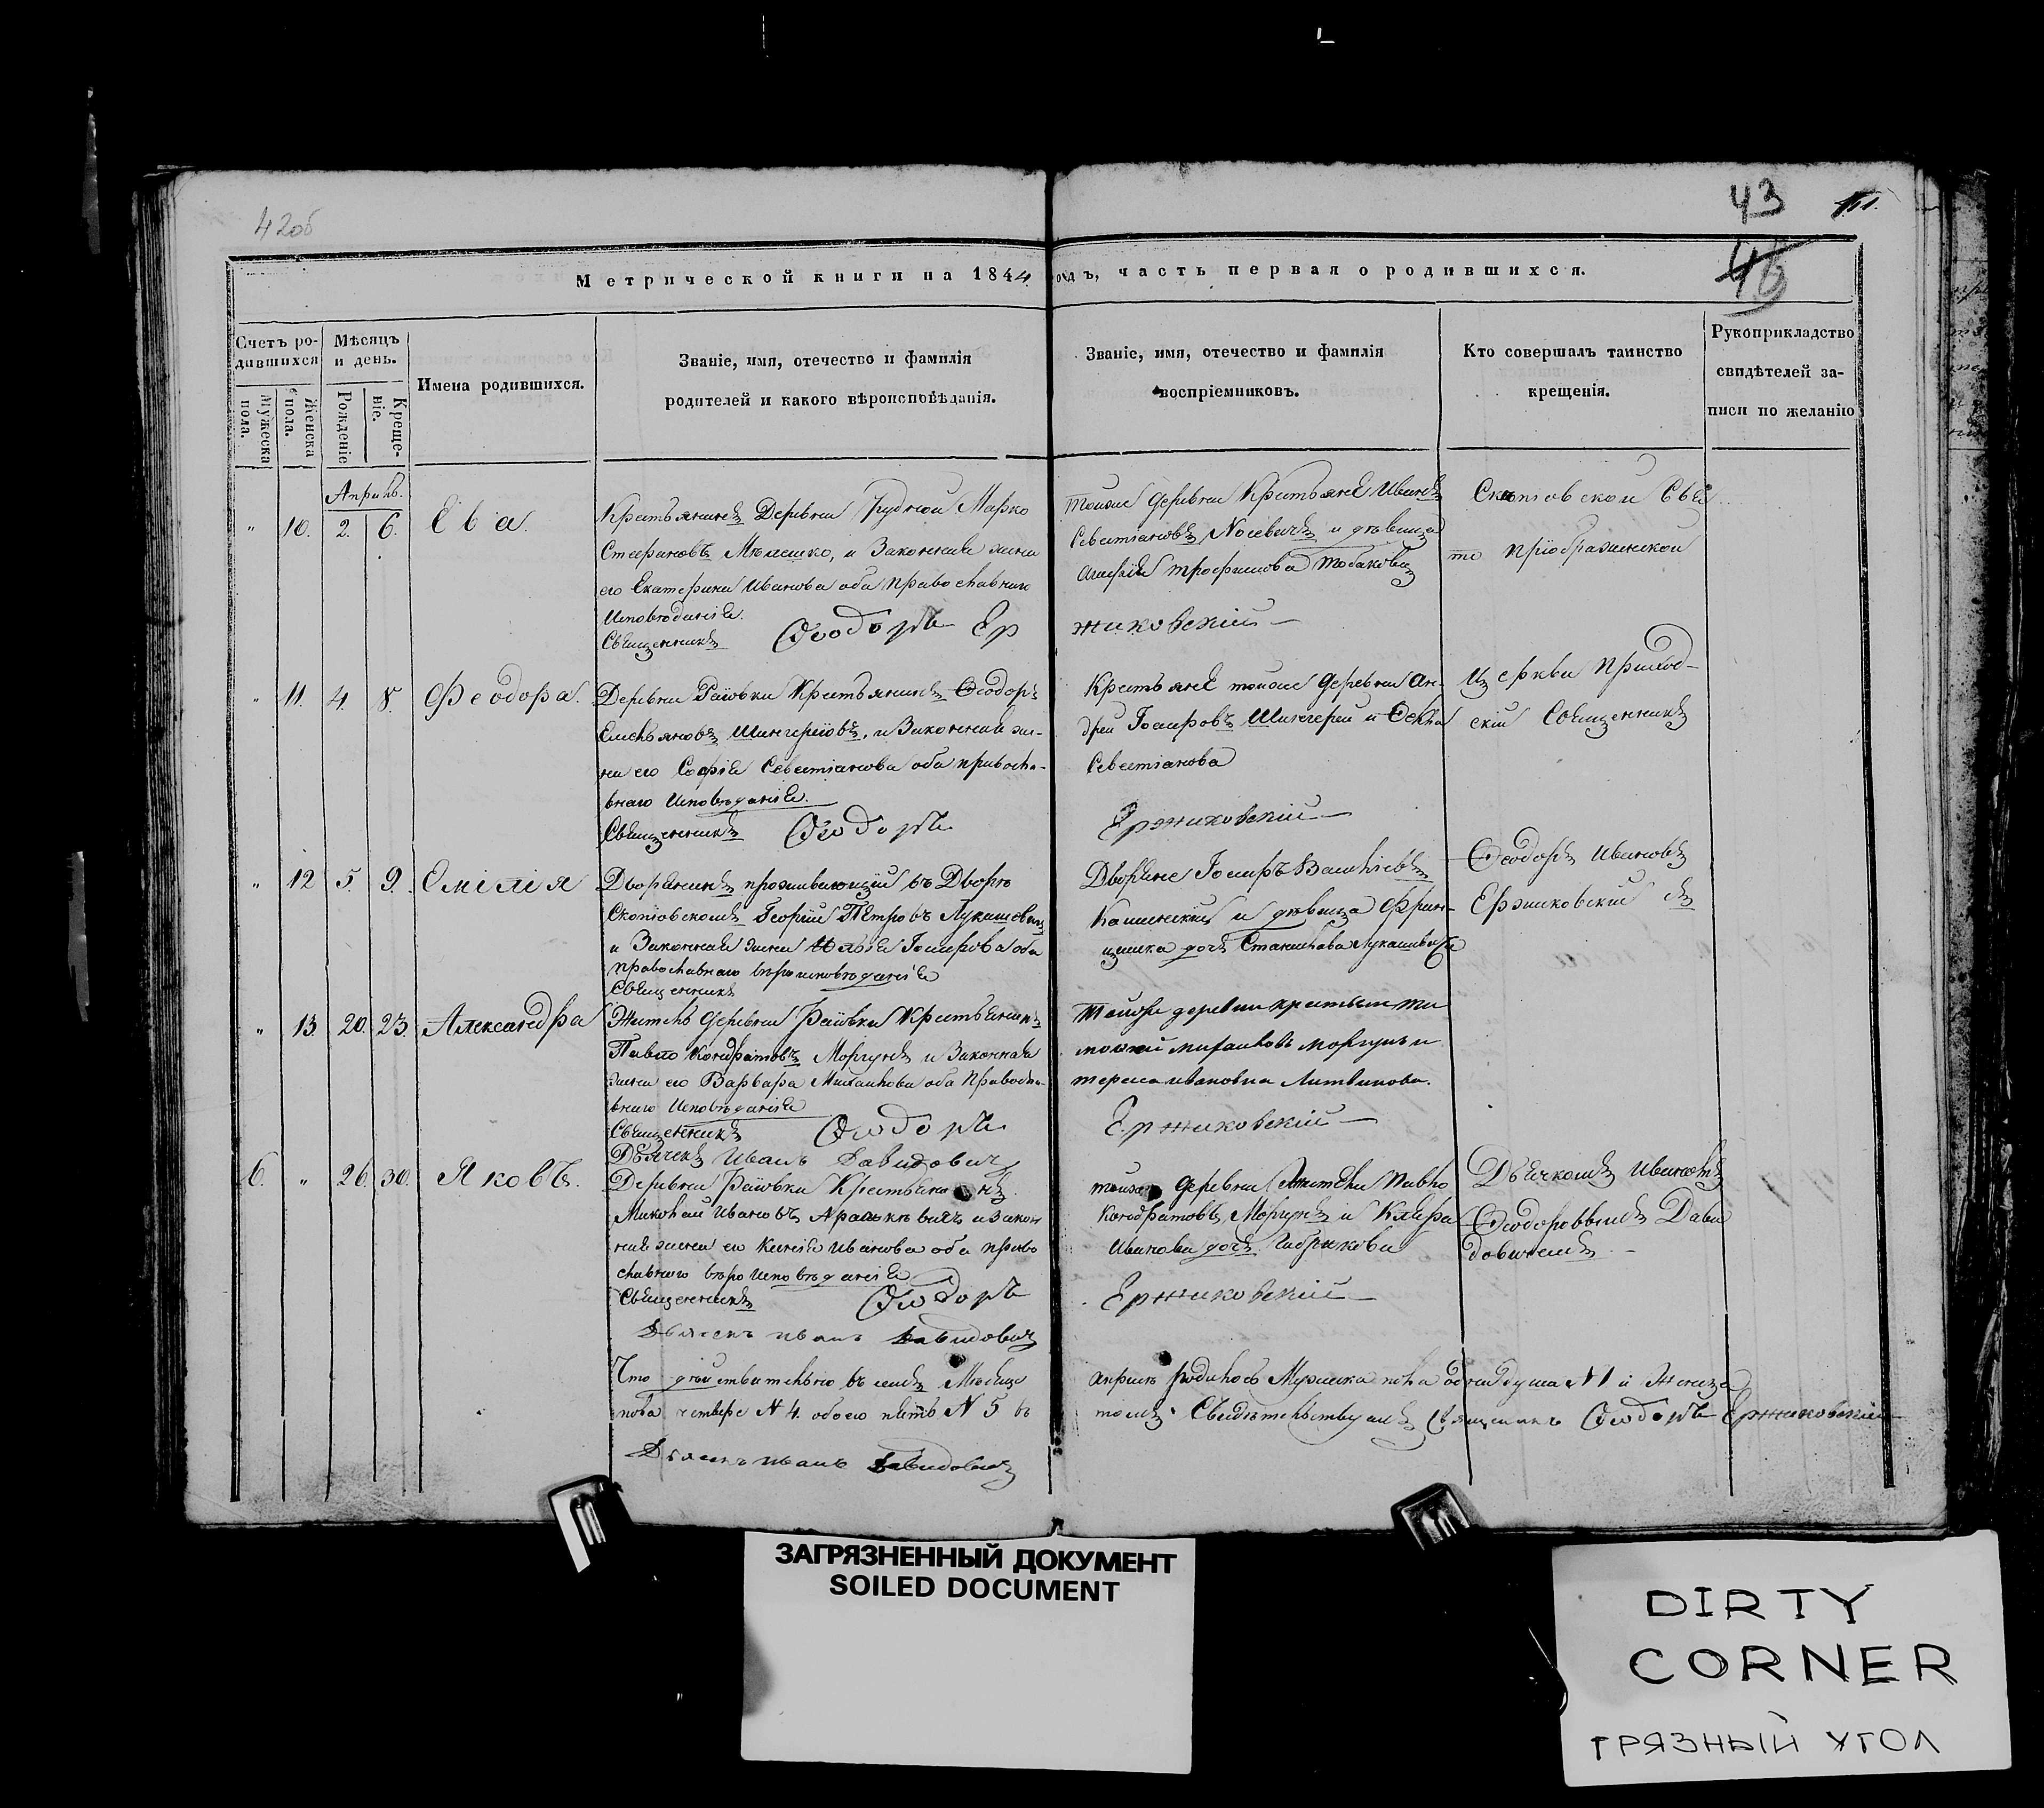 42об
43
Метрической книги на 1844 годъ, часть первая о родившихся.
Счетъ ро-
дившихся
Мужеска
пола.
Женска
пола.
Мѣсяцъ
и день.
Рожденіе
Креще-
ніе.
Имена родившихся.
Званіе, имя, отечество и фамилія
родителей и какого вѣроисповѣданія.
Званіе, имя, отечество и фамилія
воспріемниковъ.
Кто совершалъ таинство
крещенія.
Рукоприкладство
свидѣтелей за-
писи по желанію
Апрѣль.
" 10. 2. 6. Ева.
Крестьянинъ Деревни Рудной Марко
Стефановъ Мѣлешко, и Законная жена
его Екатерина Иванова оба православнаго
Исповѣданія.
Священникъ Ѳеодоръ Ержиковскій
тойже деревни Крестьяне Иванъ
Севастіановъ Носевичъ и дѣвица
Агафія Трофимова
Скепіовской Свя
то Преображенской
" 11. 4. 8. Феодора.
Деревни Раіовки Крестьянинъ Ѳеодоръ
Емельяновъ, и Законная же-
на его Софія Севастіанова оба правосла-
внаго Исповѣданія.
Священникъ Ѳеодоръ Ержиковскій
Крестьяне тойже деревни Ан-
дрей Іосифовъ и Ѳекла
Севастіанова
церкви Приход-
скій Священникъ
" 12 5. 9. Емілія
Дворянинъ проживающій въ Дворѣ
Георгій Петровъ Лукашевичъ
и Законная жена Юлія Іосифова оба
православнаго вѣроисповѣданія
Священникъ
Дворяне Іосифъ Васильевъ
Каминскій и дѣвица Фран-
цишка дочь Станислава Лукашевича
Ѳеодоръ Ивановъ
Ержиковскій съ
" 13. 20. 23. Александра
Житель деревни Раіовки Крестьянинъ
Павло Кондратовъ Моргунъ и Законная
жена его Варвара Михайлова оба Правосла-
внаго Исповѣданія
Священникъ Ѳеодоръ Ержиковскій
Дьячекъ Иванъ Давидовичъ
Тойже деревни крестьяне Ти
мофей Михайловъ Моргунъ и
тереса ивановна Литвинова.
6. " 26. 30. Яковъ.
Деревни Раіовки Крестьянинъ
Николай Ивановъ и закон
ная жена его Ксенія Иванова оба право
славнаго вѣроисповѣданія
Священникъ Ѳеодоръ Ержиковскій
Дьячекъ Иванъ Давидовичъ
тойже деревни Жители Павло
Кондратовъ Моргунъ и Клара
Иванова дочь
Дьячкомъ Иваномъ
Ѳеодоровымъ Дави
довичемъ.
Что дѣйствительно въ семъ Мѣсяцѣ апрѣлѣ родилось Мужеска пола одна душа N 1 и Женска
пола четыре N 4. обоего пять N 5 въ томъ Свидѣтельствуемъ Священникъ Ѳеодоръ Ержиковскій
Дьячекъ Иванъ Давидовичъ
ЗАГРЯЗНЕННЫЙ ДОКУМЕНТ
SOILED DOCUMENT
DIRTY
CORNER
ГРЯЗНЫЙ УГОЛ